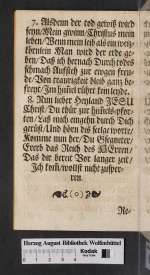 7. Alsdenn der tod gewiß wird
seyn/ Mein gwinn/ Christus mein
leben/ Wenn mein leib als ein weitz-
körnlein Man wird der erde ge-
ben/ Daß ich hernach Durch todes
schmach Aufsteh zur ewgen freu-
de/ Von traurigkeit bleib gantz be-
freyt/ Jm himel rühet kein leyde.
8. Nun lieber Heyland JESU
Christ/ Du thür zur himels-pfor-
ten/ Laß mich eingehn durch dich
gerüst/ Und hörn die selge worte/
Komme nun her/ Du Gsegneter/
Ererb das Reich des HErren/
Das dir bereit Vor langer zeit/
Jch komm/ wollst nicht zusper-
ren.
Re-
Herzog August Bibliothek Wolfenbüttel
Kodak